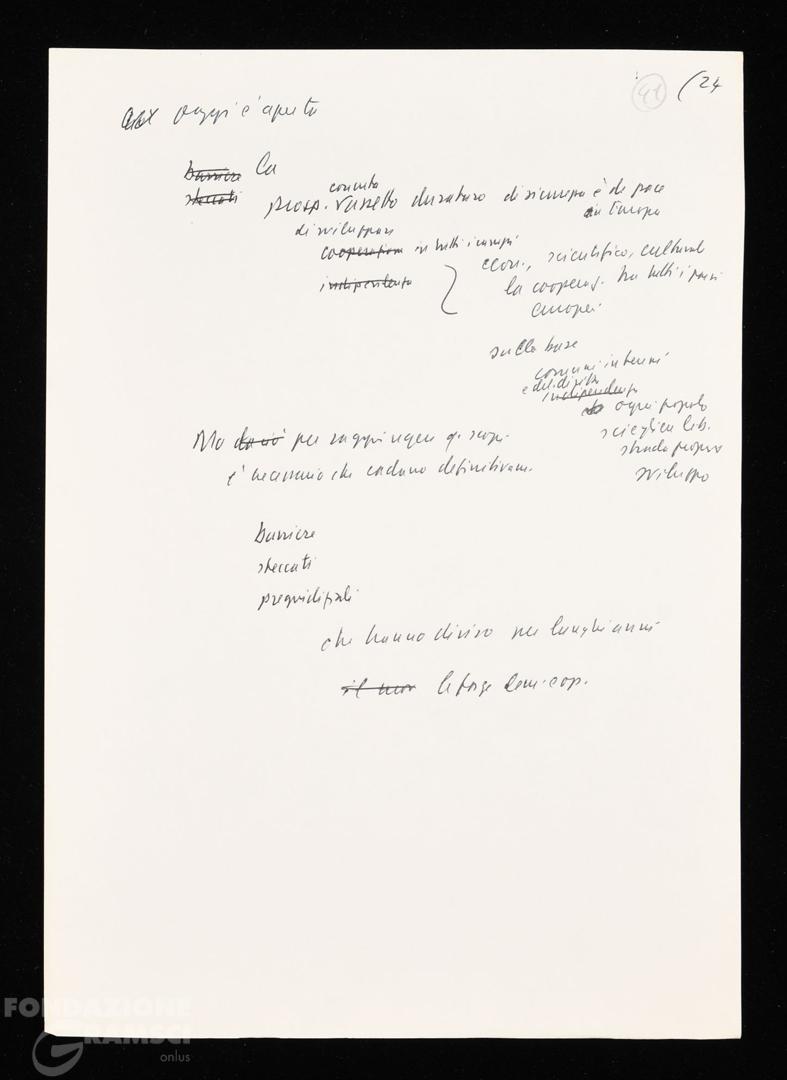 41 (24
oggi è aperta
barriere La
steccati
concreta
prosp. assetto duraturo di sicurezza e di pace
in Europa
di sviluppare
cooperazione in tutti i campi
econ., scientifico, culturale
indipendenza
la cooperaz. tra tutti i paesi
europei
sulla base
comuni interessi
e del diritto
indipendenza
ogni popolo
scegliere lib.
Ma per raggiungere q. scopi
strada propria
è necessario che cadano definitivam.
sviluppo
barriere
steccati
pregiudiziali
che hanno diviso per lunghi anni
il mov le forze dem. e op.
FONDAZIONE
GRAMSCI
onlus